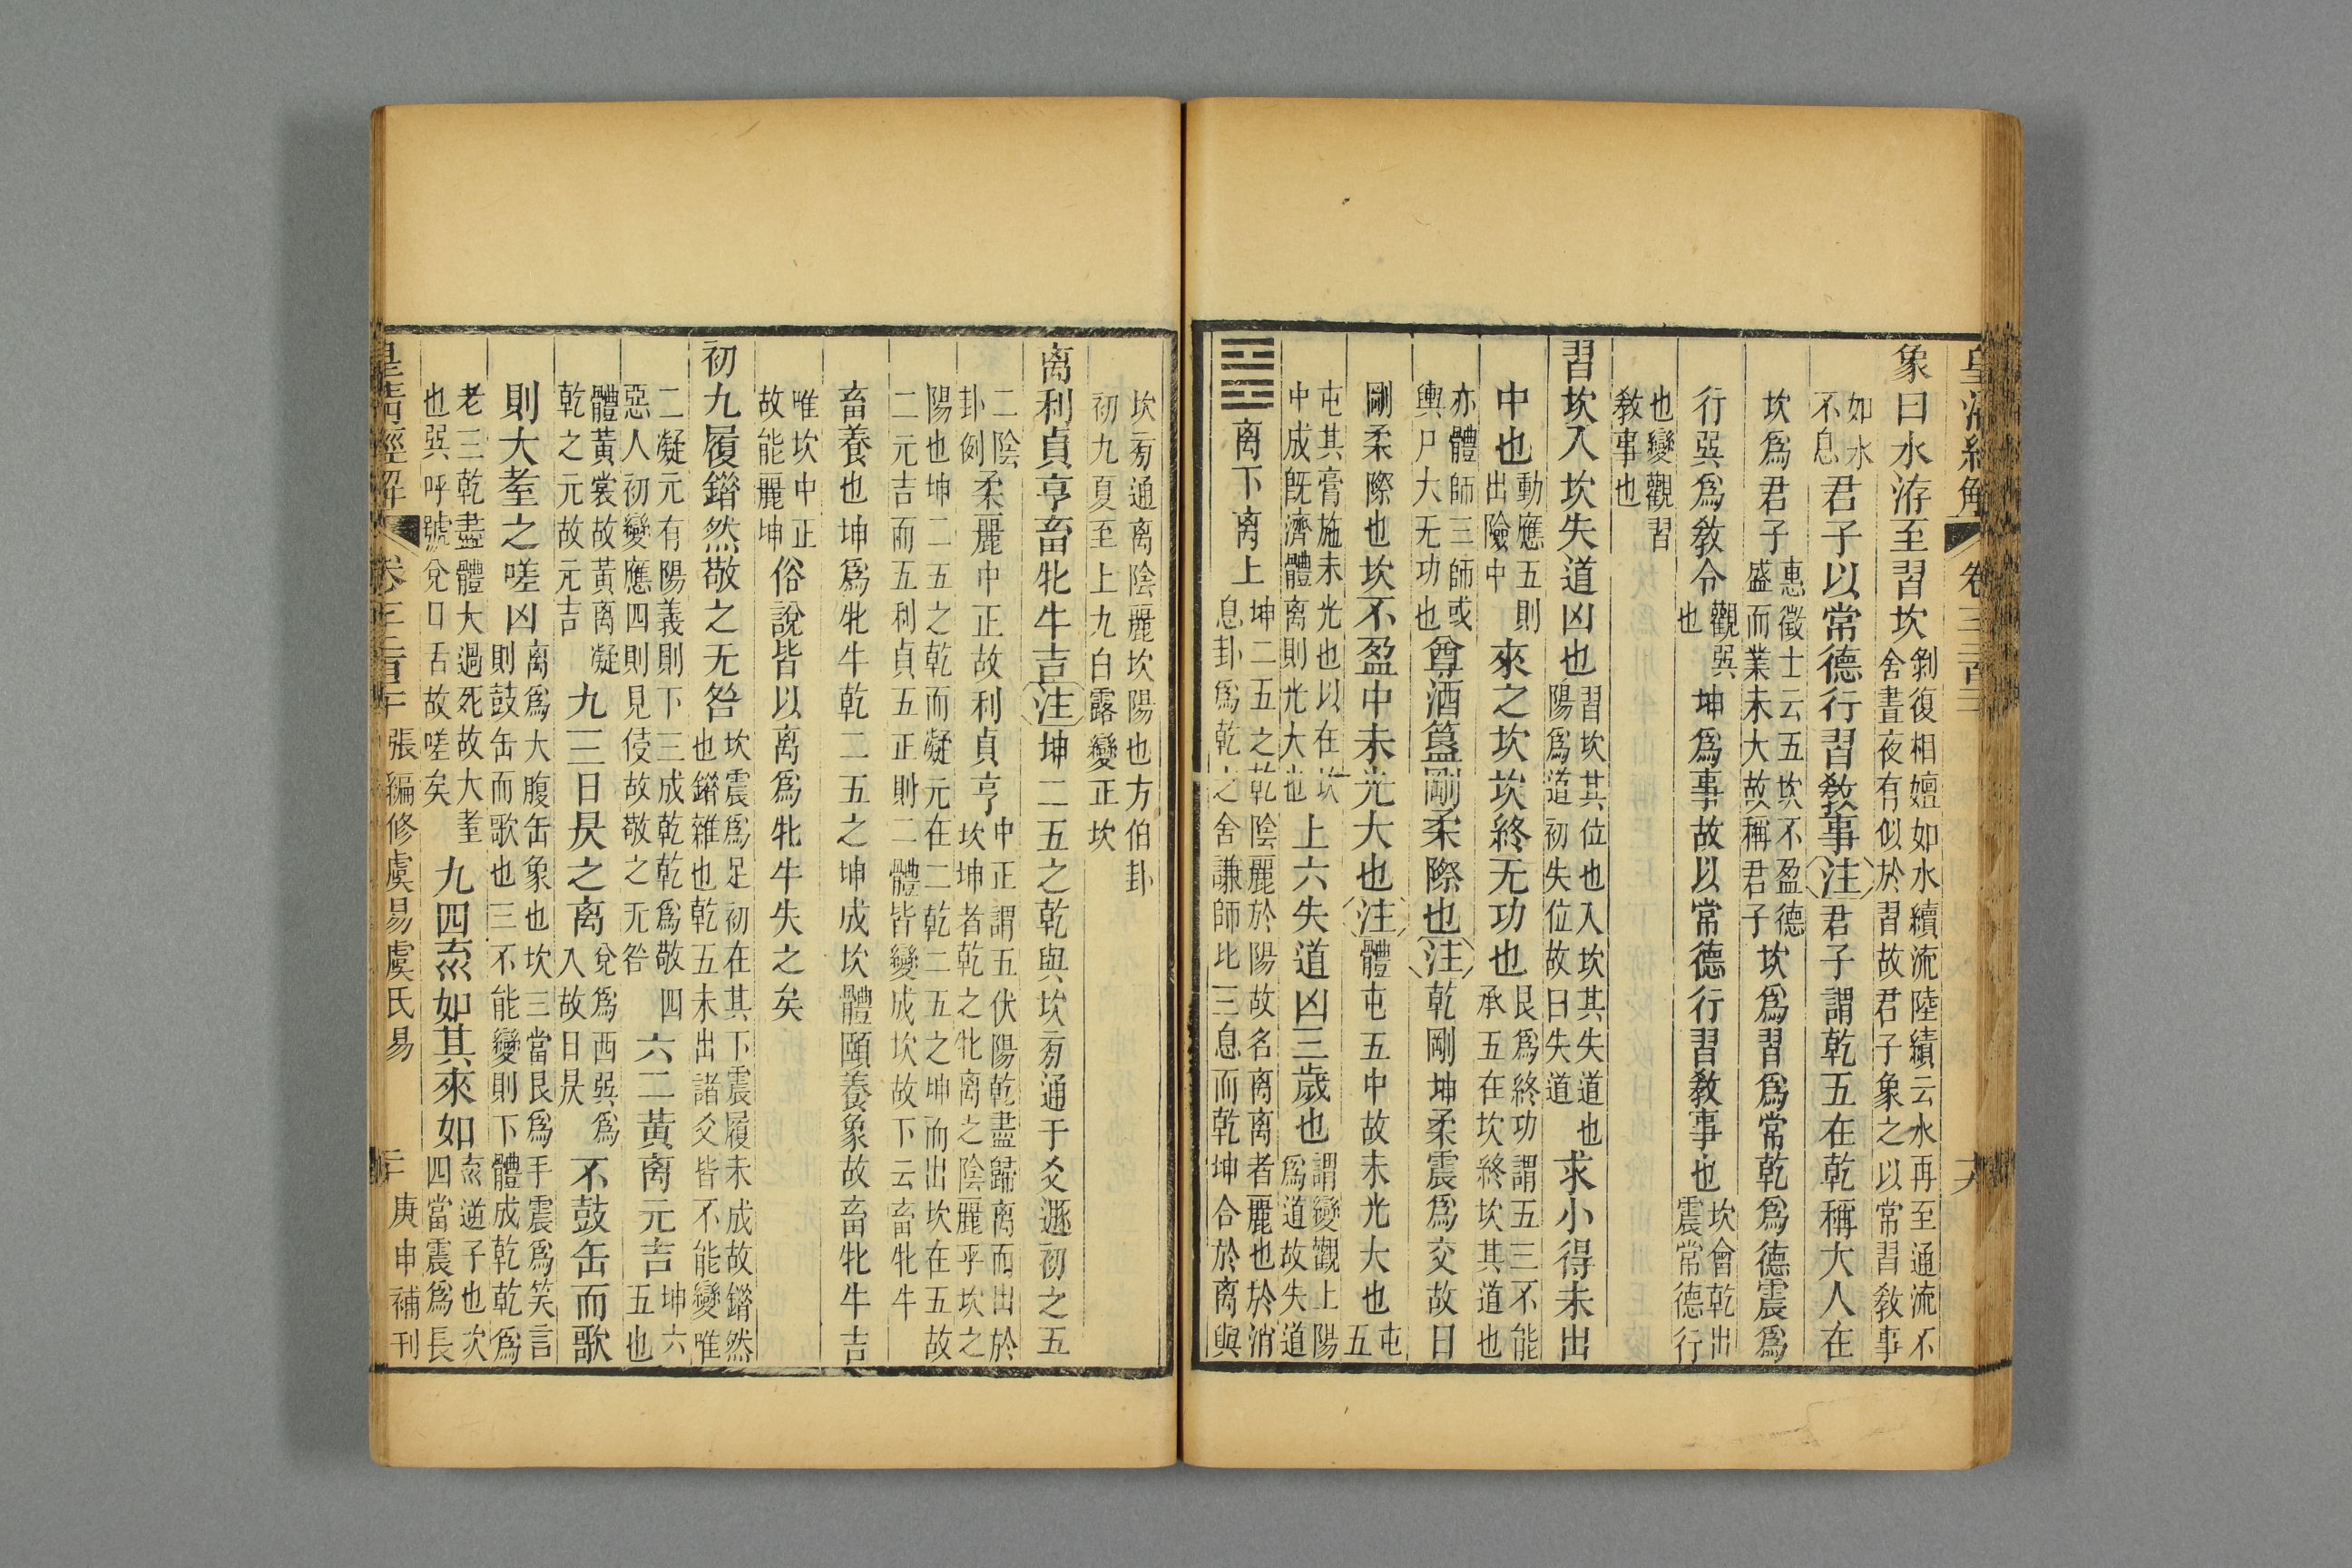 皇清經解 卷三百三 六
象曰水洊至習坎剝復相嬗如水續流陸績云水再至通流不
舍晝夜有似於習故君子象之以常習敎事
如水不息君子以常德行習敎事注君子謂乾五在乾稱大人在
坎爲君子惠徵士云五坎不盈德盛而業未大故稱君子坎爲習爲常乾爲德震爲
行巽爲敎令觀巽也坤爲事故以常德行習敎事也坎會乾出震常德行
也變觀習敎事也
習坎入坎失道凶也習坎其位也入坎其失道也陽爲道初失位故曰失道求小得未出
中也動應五則出險中來之坎坎終无功也艮爲終功謂五三不能承五在坎終坎其道也
亦體師三師或輿尸大无功也尊酒簋剛柔際也注乾剛坤柔震爲交故曰
剛柔際也坎不盈中未光大也注體屯五中故未光大也屯五
屯其膏施未光也以在坎中成旣濟體离則光大也上六失道凶三歲也謂變觀上陽爲道故失道
离下离上坤二五之乾陰麗於陽故名离离者麗也於消息卦爲乾之舍謙師比三息而乾坤合於离與
坎㫄通离陰麗坎陽也方伯卦
初九夏至上九白露變正坎
离利貞亨畜牝牛吉注坤二五之乾與坎㫄通于爻遯初之五
二陰卦例柔麗中正故利貞亨中正謂五伏陽乾盡歸离而出於坎坤者乾之牝离之陰麗乎坎之
陽也坤二五之乾而凝元在二乾二五之坤而出坎在五故
二元吉而五利貞五正則二體皆變成坎故下云畜牝牛
畜養也坤爲牝牛乾二五之坤成坎體頤養象故畜牝牛吉
唯坎中正故能麗坤俗說皆以离爲牝牛失之矣
初九履錯然敬之无咎坎震爲足初在其下震履未成故錯然也錯雜也乾五未出諸爻皆不能變唯
二凝元有陽義則下三成乾乾爲敬四惡人初變應四則見侵故敬之无咎六二黃离元吉坤六五也
體黃裳故黃离凝乾之元故元吉九三日昃之离兌爲西巽爲入故日昃不鼓缶而歌
則大耋之嗟凶离爲大腹缶象也坎三當艮爲手震爲笑言則鼓缶而歌也三不能變則下體成乾乾爲
老三乾盡體大過死故大耋也巽呼號兌口舌故嗟矣九四㐬如其來如㐬逆子也次四當震爲長
皇清經解 卷三百三 張編修虞易虞氏易 庚申補刊